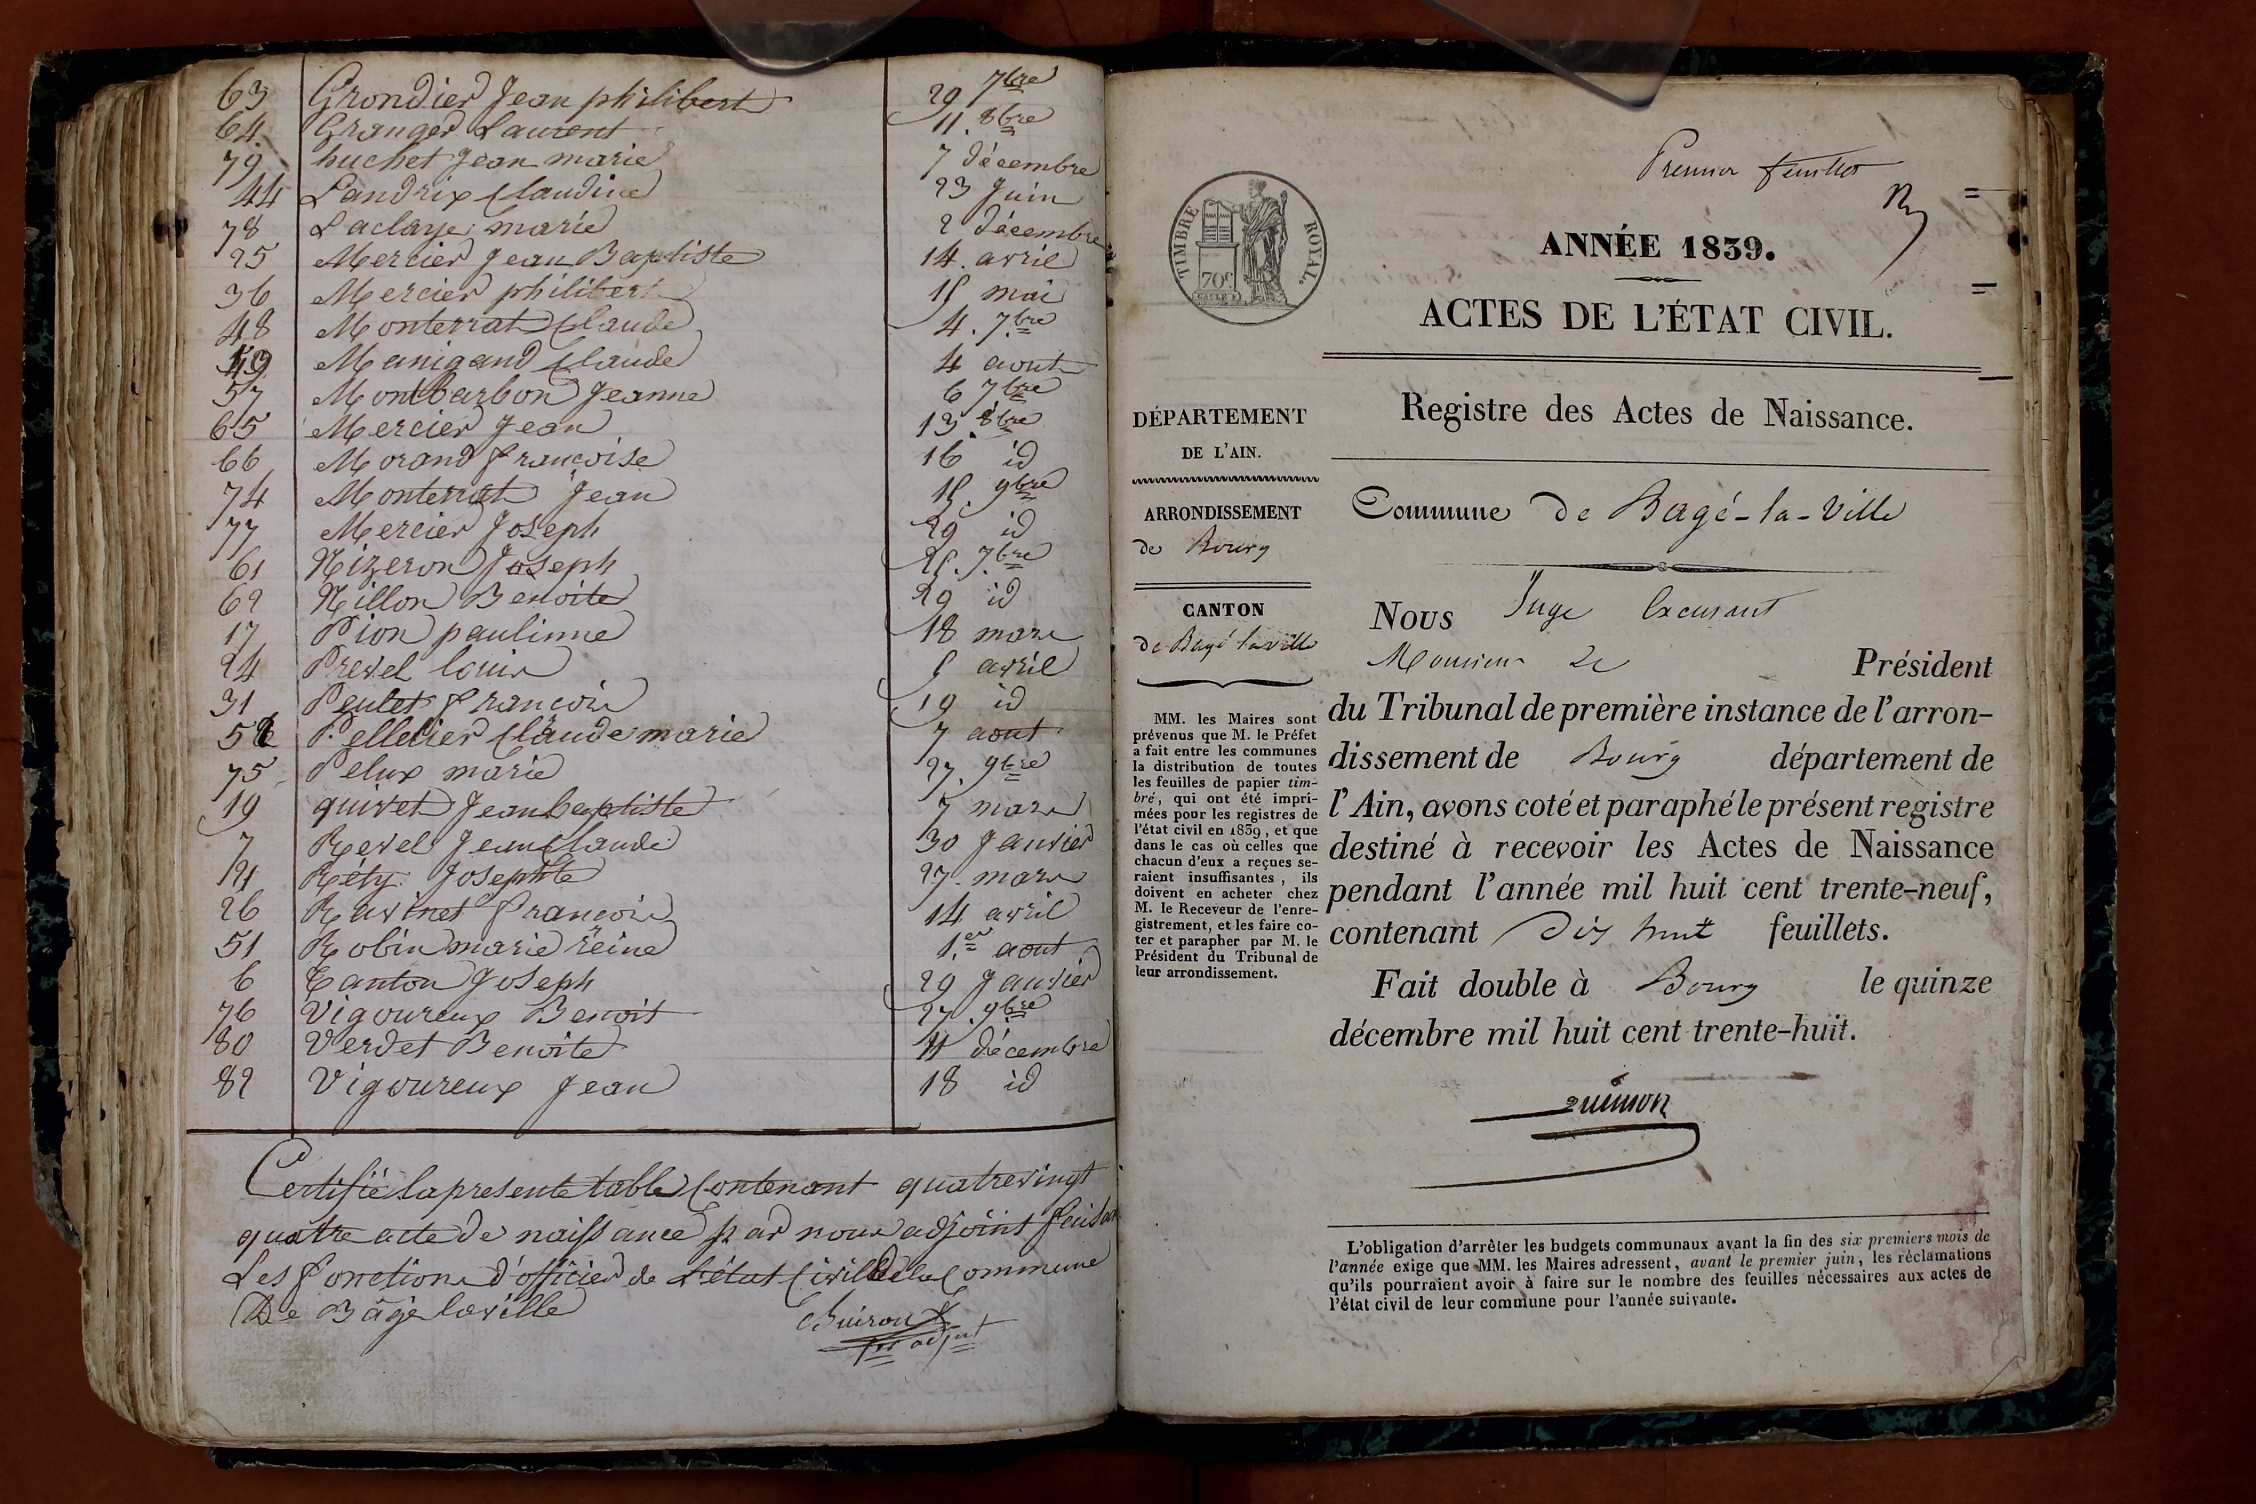 63 Grondier Jean philibert 29 7bre
64 Granger Laurent 11. 8bre
79 huchet Jean marie 7 décembre
44 Landrix Claudine 23 Juin
78 Laclaye marie 2 décembre
25 Mercier Jean Baptiste 14. avril
36 Mercier philibert 15 mai
48 Monterrat Claude 4. 7bre
49 Manigand Claude 4 aout
57 Montbarbon Jeanne 6 7bre
65 Mercier Jean 13. 8bre
66 Morand françoise 16 id
74 Monterrat Jean 15. 9bre
77 Mercier Joseph 29 id
61 Nizeron Joseph 25. 7bre
62 Nillon Benoite 29 id
17 Pion paulinne 18 mars
24 Prevel louis 5 avril
31 Peulet françois 19 id
52 Pelletier Claude marie 7 aout
75 Pelux marie 27. 9bre
19 quivet Jean baptiste 7 mars
7 Revel Jean Claude 30 Janvier
21 Réty Josephte 27. mars
26 Ravinet françois 14 avril
51 Robin marie reine 1.er aout
6 Tanton Joseph 29 Janvier
76 Vigoureux Benoit 27. 9bre
80 Verdet Benoite 11 décembre
82 Vigoureux Jean 18 id
Certifié la presente table Contenant quatre vingt
quatre acte de naissance par nous adjoint feisant
Les fonctions d'officier de L'état Civille de la Commune
De Bâgé laville
Buiron
adjnt
Premier feuillet
TIMBRE ROYAL.
70c
ANNÉE 1839.
ACTES DE L'ÉTAT CIVIL.
DÉPARTEMENT
DE L'AIN.
ARRONDISSEMENT
de Bourg
CANTON
de Bagé la ville
MM. les Maires sont
prévenus que M. le Préfet
a fait entre les communes
la distribution de toutes
les feuilles de papier tim-
bré, qui ont été impri-
mées pour les registres de
l'état civil en 1839, et que
dans le cas où celles que
chacun d'eux a reçues se-
raient insuffisantes, ils
doivent en acheter chez
M. le Receveur de l'enre-
gistrement, et les faire co-
ter et parapher par M. le
Président du Tribunal de
leur arrondissement.
Registre des Actes de Naissance.
Commune de Bagé-la-Ville
Nous Juge Excusant
Monsieur Le Président
du Tribunal de première instance de l'arron-
dissement de Bourg département de
l'Ain, avons coté et paraphé le présent registre
destiné à recevoir les Actes de Naissance
pendant l'année mil huit cent trente-neuf,
contenant Dix huit feuillets.
Fait double à Bourg le quinze
décembre mil huit cent trente-huit.
L'obligation d'arrêter les budgets communaux avant la fin des six premiers mois de
l'année exige que MM. les Maires adressent, avant le premier juin, les réclamations
qu'ils pourraient avoir à faire sur le nombre des feuilles nécessaires aux actes de
l'état civil de leur commune pour l'année suivante.